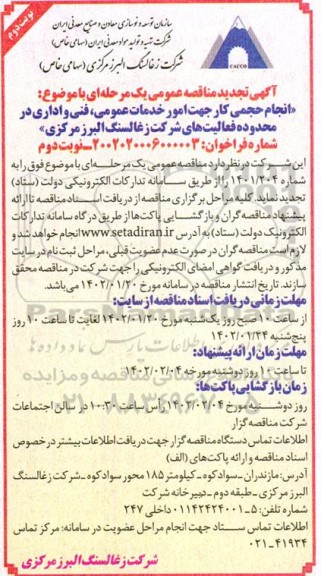 نوبت دوم
سازمان توسعه و نوسازی معادن و صنایع معدنی ایران
شرکت تهیه و تولید مواد معدنی ایران (سهامی خاص)
شرکت زغالسنگ البرز مرکزی (سهامی خاص)
CACCO
آگهی تجدید مناقصه عمومی یک مرحله‌ای با موضوع:
«انجام حجمی کار جهت امور خدمات عمومی، فنی و اداری در
محدوده فعالیت‌های شرکت زغالسنگ البرز مرکزی»
شماره فراخوان: ۲۰۰۲۰۲۰۰۰۶۰۰۰۰۰۳_نوبت دوم
این شرکت در نظر دارد مناقصه عمومی یک مرحله‌ای با موضوع فوق را به
شماره ۱۴۰۱/۲۰۴ را از طریق سامانه تدارکات الکترونیکی دولت (ستاد)
تجدید نماید. کلیه مراحل برگزاری مناقصه از دریافت اسناد مناقصه تا ارائه
پیشنهاد مناقصه گران و بازگشایی پاکت‌ها از طریق درگاه سامانه تدارکات
الکترونیک دولت (ستاد) به آدرس www.setadiran.ir انجام خواهد شد و
لازم است مناقصه گران در صورت عدم عضویت قبلی، مراحل ثبت نام در سایت
مذکور و دریافت گواهی امضای الکترونیکی را جهت شرکت در مناقصه محقق
سازند. تاریخ انتشار مناقصه در سامانه مورخ ۱۴۰۲/۰۱/۲۰ می‌باشد.
مهلت زمانی دریافت اسناد مناقصه از سایت:
از ساعت ۱۰ صبح روز یک‌شنبه مورخ ۱۴۰۲/۰۱/۲۰ لغایت تا ساعت ۱۰ روز
پنج‌شنبه ۱۴۰۲/۰۱/۲۴
مهلت زمان ارائه پیشنهاد:
تا ساعت ۱۰ روز دوشنبه مورخه ۱۴۰۲/۰۲/۰۴
زمان بازگشایی پاکت‌ها:
روز دوشنبه مورخ ۱۴۰۲/۰۲/۰۴ رأس ساعت ۱۰:۳۰ در سالن اجتماعات
شرکت مناقصه گزار
اطلاعات تماس دستگاه مناقصه گزار جهت دریافت اطلاعات بیشتر در خصوص
اسناد مناقصه و ارائه پاکت‌های (الف)
آدرس: مازندران_سوادکوه_کیلومتر ۱۸۵ محور سوادکوه_شرکت زغالسنگ
البرز مرکزی_طبقه دوم_دبیرخانه شرکت
شماره تلفن: ۵_۰۱۱۴۲۴۲۴۰۰۱ داخلی ۲۴۷
اطلاعات تماس ستاد جهت انجام مراحل عضویت در سامانه: مرکز تماس
۰۲۱-۴۱۹۳۴
شرکت زغالسنگ البرز مرکزی